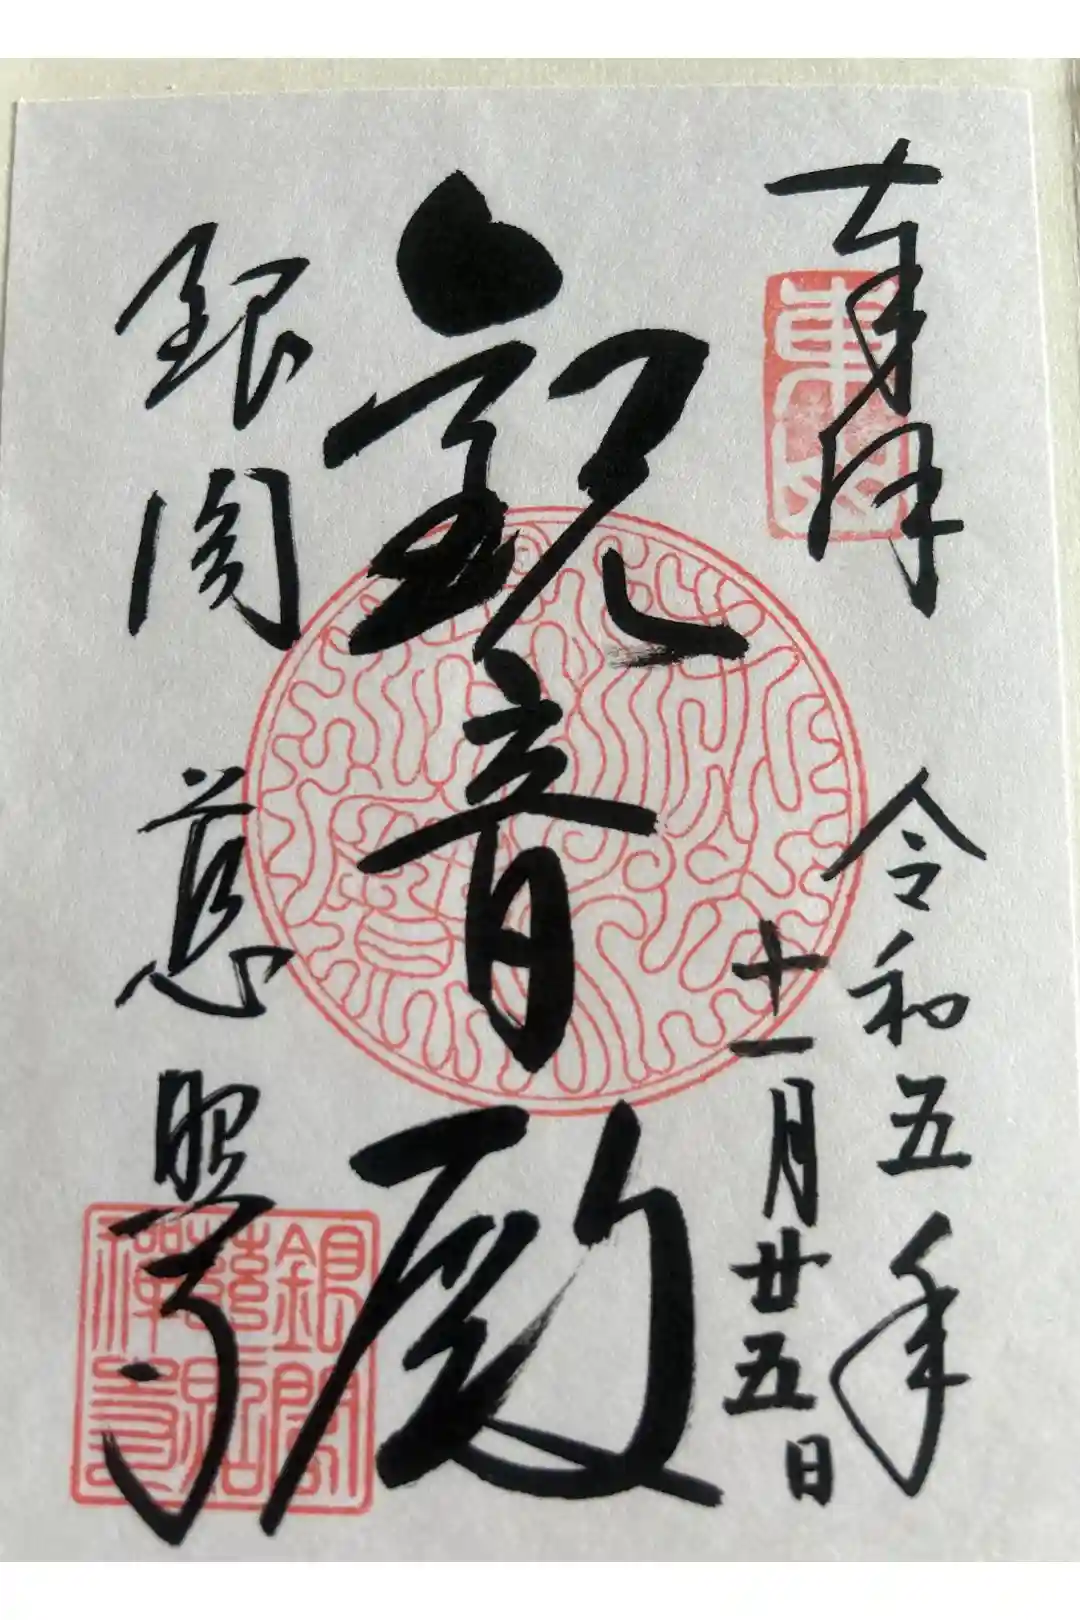 奉拝
東山
令和五年
十一月廿五日
観音殿
銀閣
慈照寺
銀閣
慈照
禅寺